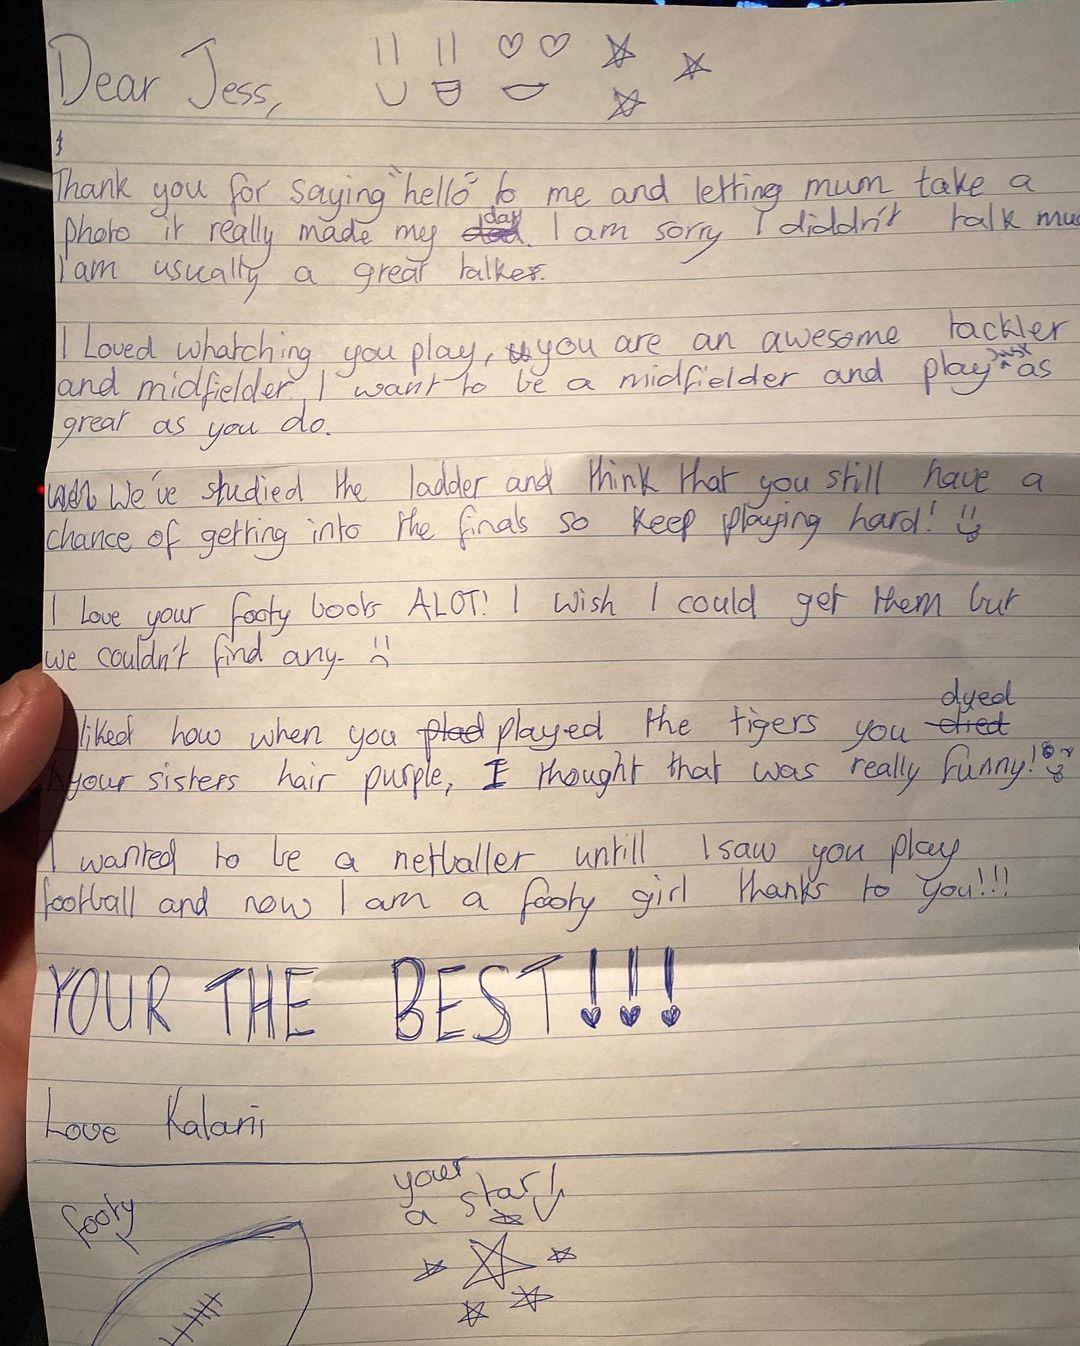 Dear Jess,
Thank you for saying "hello" to me and letting mum take a
photo it really made my day. I am sorry I diddn't talk muc
I am usually a great talker.
I Loved whatching you play, you are an awesome tackler
and midfielder. I want to be a midfielder and play just as
great as you do.
We've studied the ladder and think that you still have a
chance of getting into the finals so keep playing hard!
I Love your footy boots ALOT! I wish I could get them but
we couldn't find any.
liked how when you plad played the tigers you died dyed
your sisters hair purple, I thought that was really funny!
I wanted to be a netballer untill I saw you play
football and now I am a footy girl thanks to you!!!
YOUR THE BEST!!!
Love Kalani
footy
your
a star!